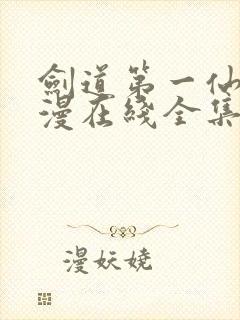 劍道第一仙
漫在綫全集
漫妖嬈